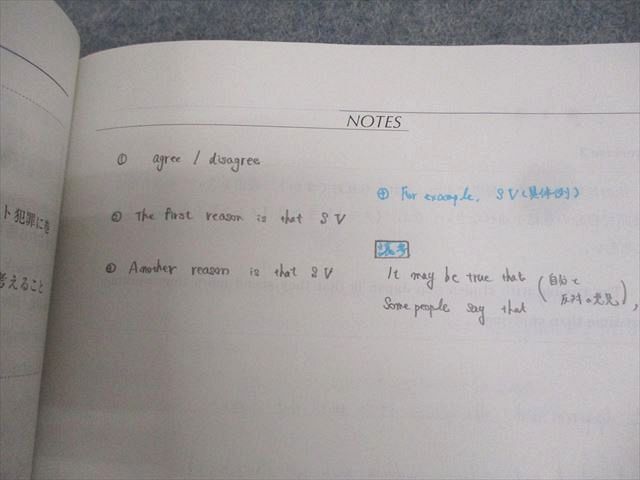 NOTES
① agree / disagree
② The first reason is that SV
③ Another reason is that SV
④ For example, SV (具体例)
It may be true that
Some people say that
(自分と
反対の意見),
ト犯罪に巻
考えること